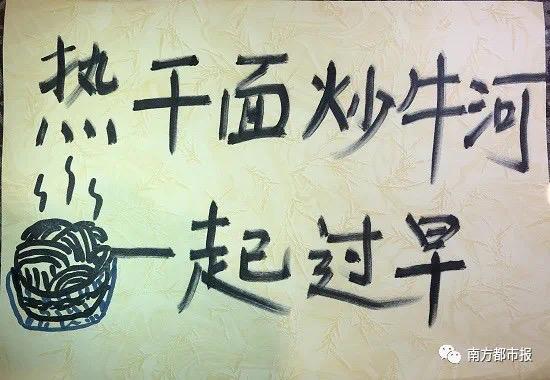 热干面炒牛河
一起过早
南方都市报